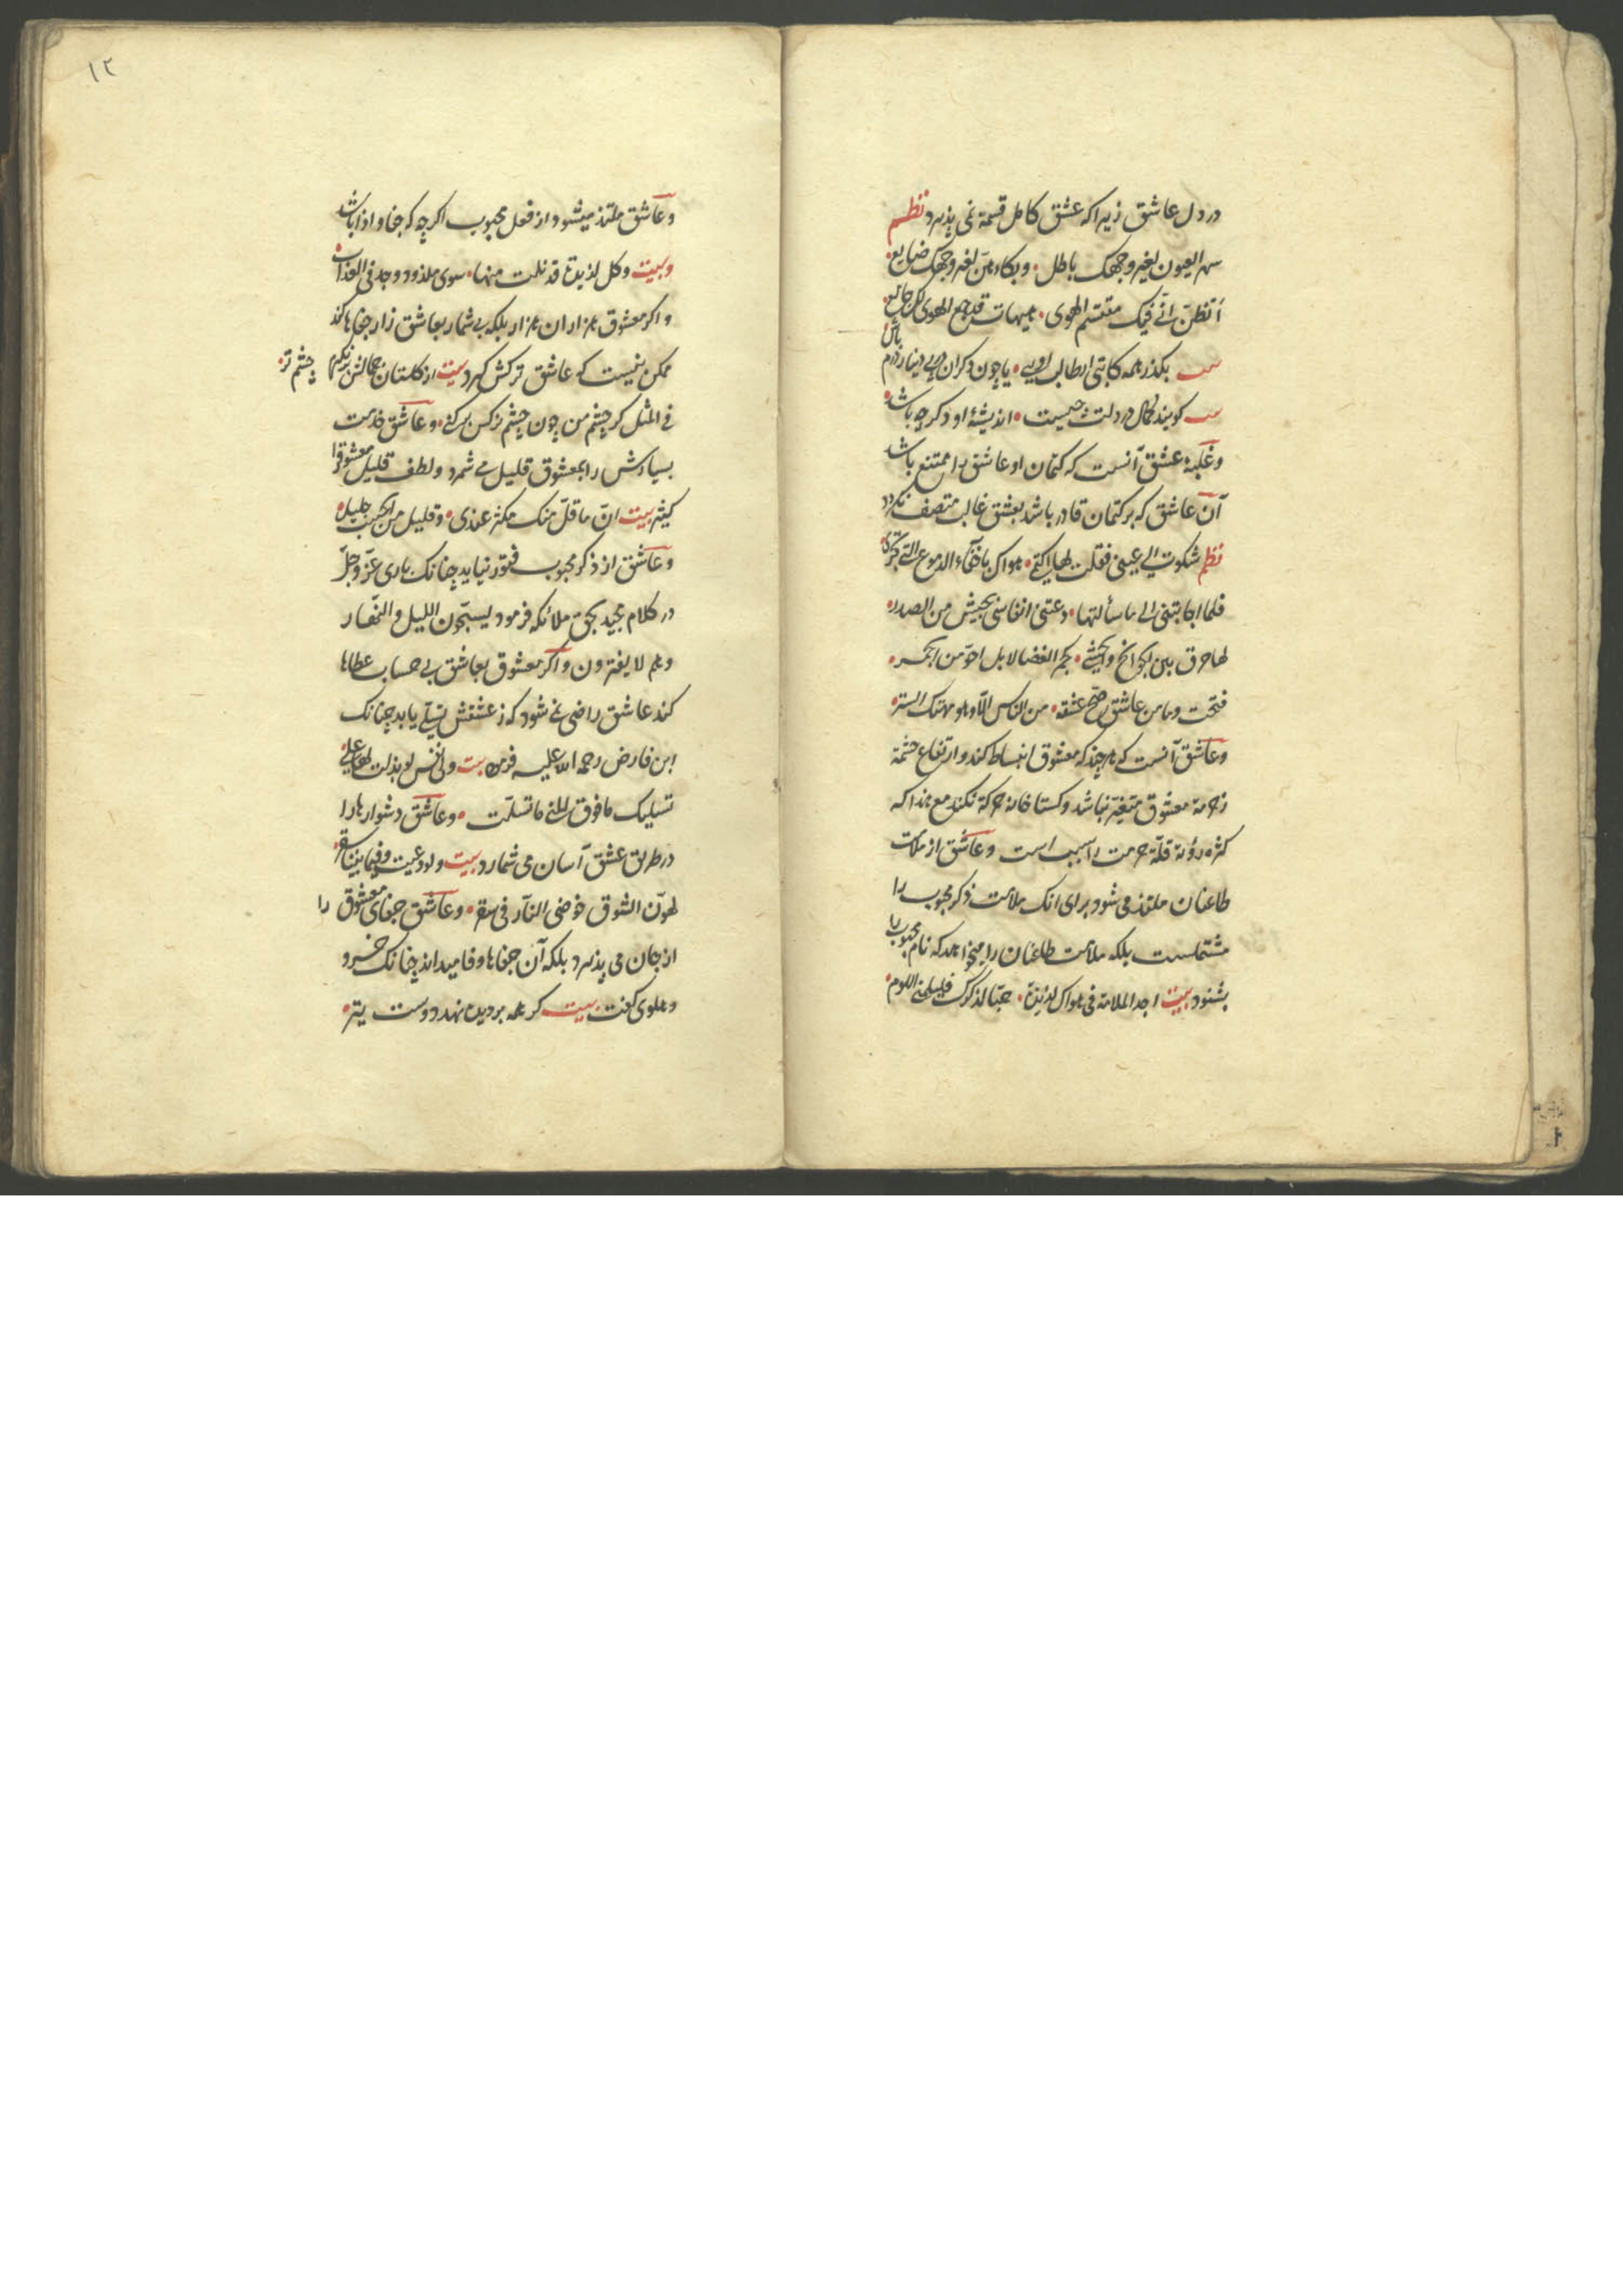 در دل عاشق زیرا که عشق کامل قسمة نمی پذیرد نظم
سهر العیون لغیر وجهک باطل • وبکاءهن لغیر وجهک ضایع •
اتظن انی فیک مقتسم الهوی • هیهات قد جمع الهوی لک جامع •
بکذر همه کابتی ار طالب اویی • یا چون دکران در پی دینار و درم باش
کویند که در دلت چیست • اندیشهٔ او دکر چه باشد •
وغلبهٔ عشق آنست که کتمان او عاشق را ممتنع باشد
آن عاشق که بر کتمان قادر باشد بعشق غالب متصف نکردد
نظم شکوت الی عینی فقلت لها اکتمی • هواک باخفاء الدموع التی تجری
فلما اجابتنی الی ما سألتها • دعتنی انفاسی بجیش من الصدر •
لها حرق بین الجوانح والحشی • کجمر الغضا لا بل احرّ من الجمر •
فتحت وما من عاشق صحّ عشقه • من الناس الّا وهو مهتک الستر •
وعاشق آنست که هر چند که معشوق انبساط کند وارتفاع حشمة
ز حرمة معشوق متغیّر نباشد وکستاخانه حرکة نکند مع هذا که
کثره رؤیة قلّة حرمت را سبب است وعاشق از ملامت
طاعنان ملتذ می شود برای انک ملامت ذکر محبوب را
مشتملست بلکه ملامت طاعنان را میخواهد که نام محبوب را
بشنود بیت اجد الملامة فی هواک لذیذة • حبّا لذکرک فلیلمنی اللوم •
۱۲
وعاشق ملتذ میشود از فعل محبوب اکرچه که جفا واذا باشد
وبیت وکل لذیذة قد نلت منها • سوی ملذوذ وجد فی العذاب •
واکر معشوق هزاران هزار بلکه بی شمار بعاشق زار جفاها کند
ممکن نیست که عاشق ترکش کیرد بیت از کلستان جمالش نکهرم چشم تر •
فی المثل کر چشم من چون چشم نرکس برکنی • وعاشق خدمت
بسیارش را بمعشوق قلیل می شمرد ولطف قلیل معشوقرا
کثیر بیت انّ ما قلّ منک مکثر عندی • وقلیل من الحبیب جلیل •
وعاشق از ذکر محبوب فتور نیابد چنانک باری عزّ وجلّ
در کلام مجید بحق ملائکه فرمود یسبّحون اللیل والنّهار
وهم لا یفترون واکر معشوق بعاشق بی حساب عطاها
کند عاشق راضی نمی شود که ز عشقش تسلّی یابد چنانک
ابن فارض رحمة الله علیه فرمود بیت ولی نفس لو بذلت لها علی
تسلیک ما فوق المنی ما تسلّت • وعاشق دشوارها را
در طریق عشق آسان می شمارد بیت ولو دعیت وفیما بیننا سقر •
لهوّن الشوق خوضی النّار فی سقر • وعاشق جفای معشوق را
از جان می پذیرد بلکه آن جفاها وفا میداند چنانک خسرو
دهلوی کفت بیت کر همه بر دیده نهد دوست تیر •